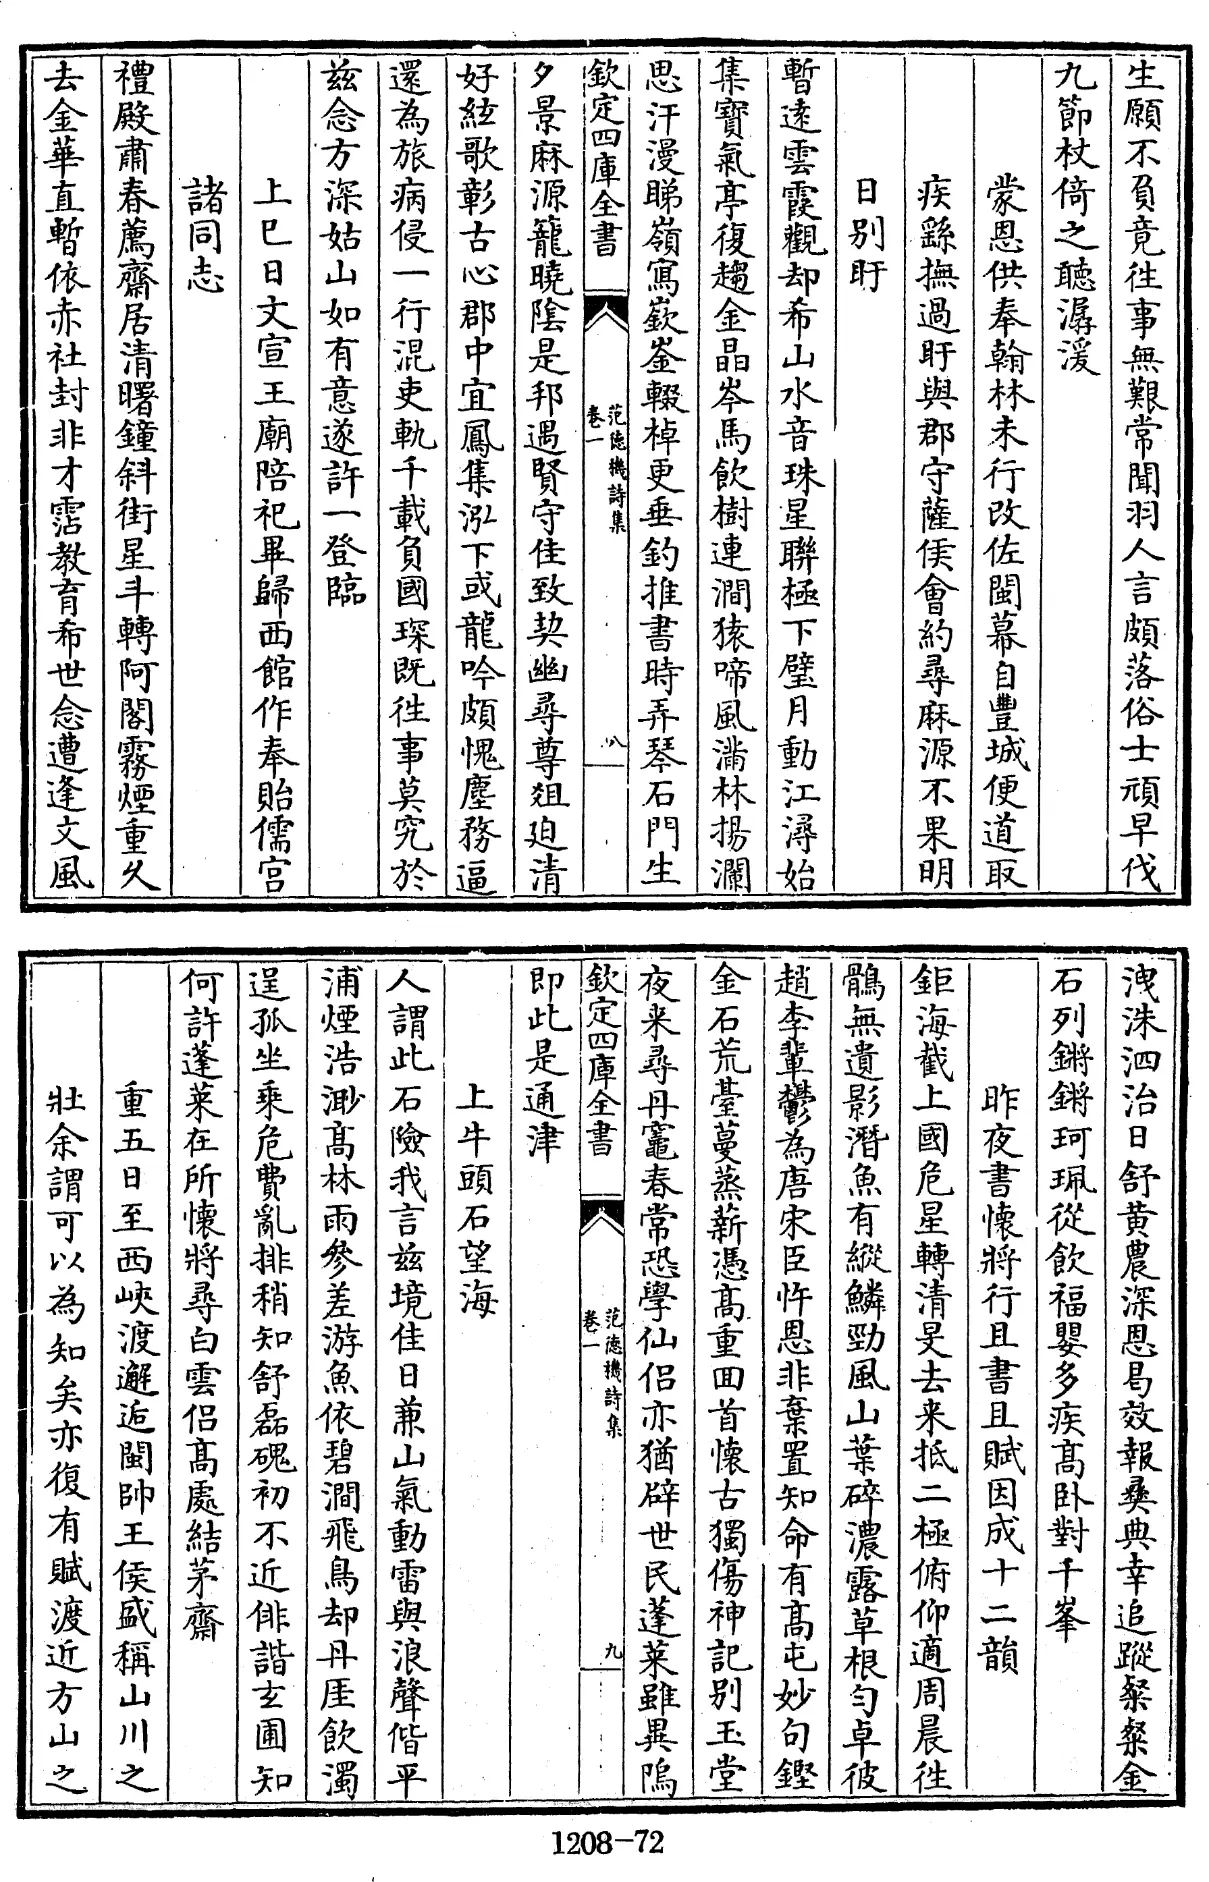 生願不負竟徃事無艱常聞羽人言頗落俗士頑早伐
九節杖倚之聽潺湲
蒙恩供奉翰林未行改佐閩幕自豐城便道取
疾繇撫過盱與郡守薩侯㑹約尋麻源不果明
日別盱
暫逺雲霞觀却希山水音珠星聯極下璧月動江潯始
集寳氣亭復趨金晶岑馬飲樹連澗猿啼風滿林揚瀾
思汗漫睇嶺寫嶔崟輟棹更垂釣推書時弄琴石門生
欽定四庫全書
范德機詩集
卷一
八
夕景麻源籠曉陰是邦遇賢守佳致契幽尋尊俎迫清
好絃歌彰古心郡中宜鳳集泓下或龍吟頗愧塵務逼
還為旅病侵一行混吏軌千載負國琛既徃事莫究於
兹念方深姑山如有意遂許一登臨
上巳日文宣王廟陪祀畢歸西館作奉貽儒宫
諸同志
禮殿肅春薦齋居清曙鐘斜街星斗轉阿閣霧煙重久
去金華直暫依赤社封非才霑教育希世念遭逢文風
洩洙泗治日舒黄農深恩曷效報彞典幸追蹤粲粲金
石列鏘鏘珂珮從飲福嬰多疾髙卧對千峯
昨夜書懷將行且書且賦因成十二韻
鉅海截上國危星轉清旻去来抵二極俯仰適周晨徃
鶻無遺影潛魚有縱鱗勁風山葉碎濃露草根勻卓彼
趙李輩鬱為唐宋臣忤恩非棄置知命有髙屯妙句鏗
金石荒臺蔓蒸薪憑髙重囬首懷古獨傷神記別玉堂
夜来尋丹竈春常恐學仙侣亦猶辟世民蓬莱雖異隝
欽定四庫全書
范德機詩集
卷一
九
即此是通津
上牛頭石望海
人謂此石險我言兹境佳日兼山氣動雷與浪聲偕平
浦煙浩渺髙林雨參差游魚依碧澗飛鳥却丹厓飲濁
逞孤坐乗危費亂排稍知舒磊磈初不近俳諧玄圃知
何許蓬莱在所懷將尋白雲侣髙處結茅齋
重五日至西峽渡邂逅閩帥王侯盛稱山川之
壯余謂可以為知矣亦復有賦渡近方山之
1208-72